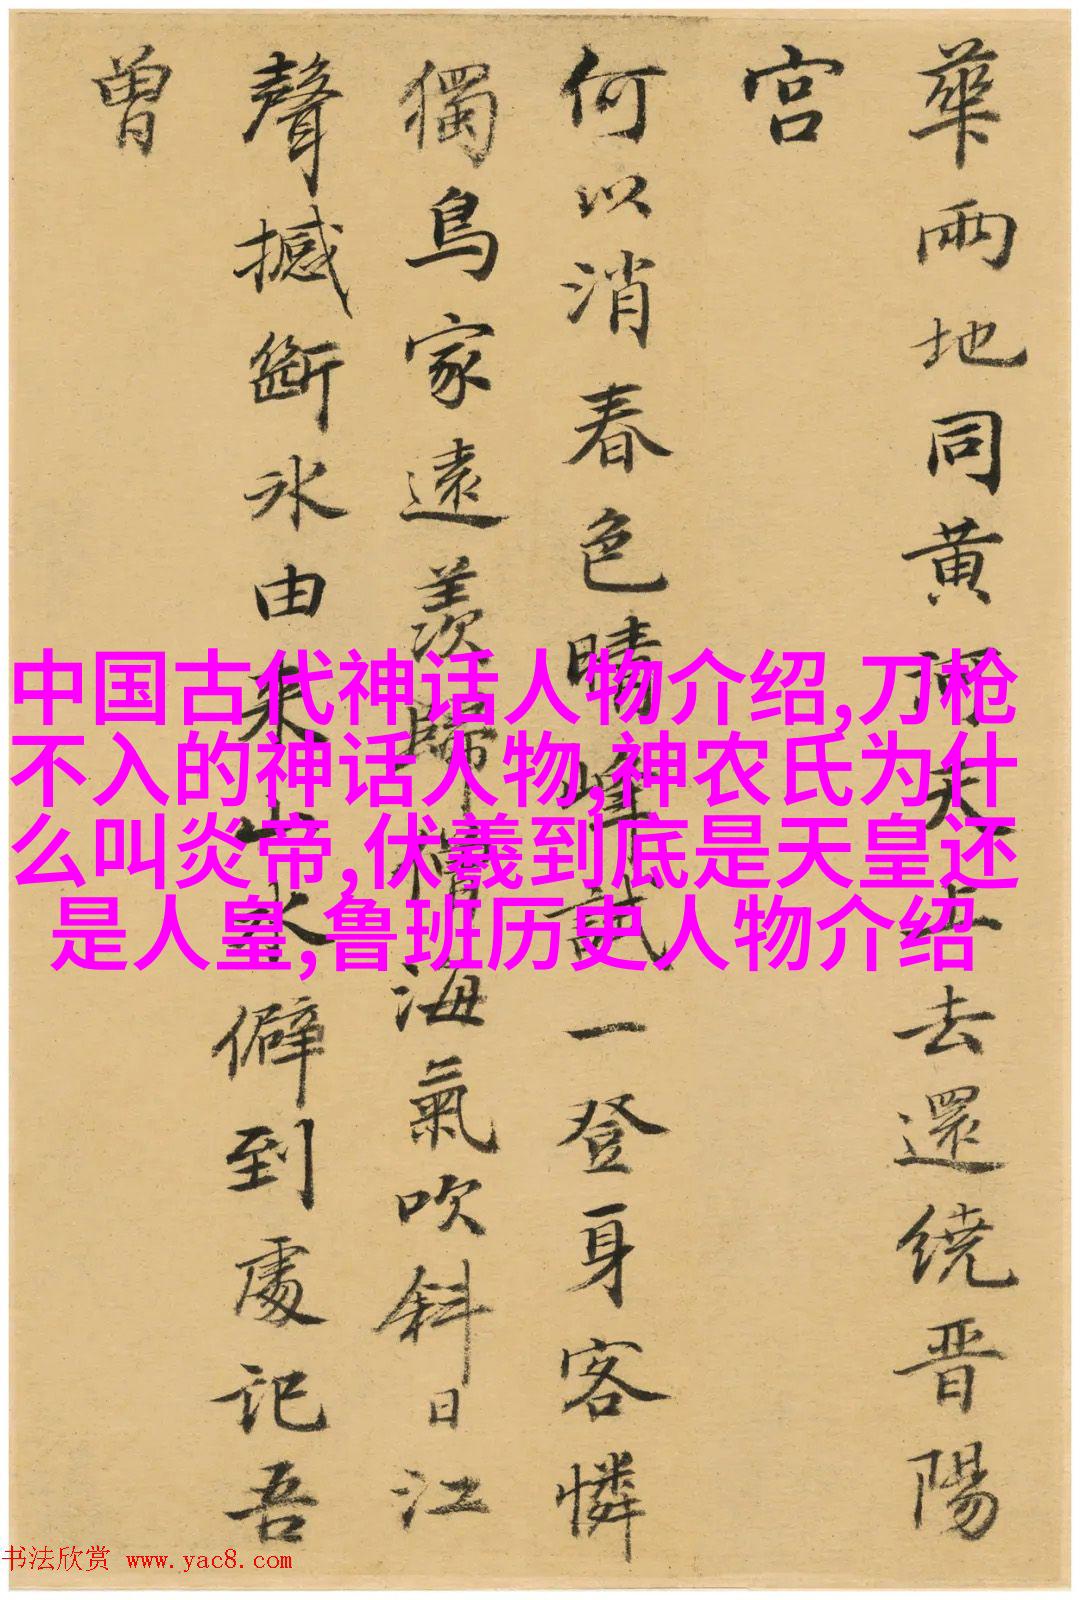 華兩地同黄河天上去還繞晋陽
宫
何以消春色晴峰試一登身客憐
獨鳥家遠羨歸僧海氣吹斜日江
聲撼斷冰由来山水僻到處記吾
曾
中国古代神话人物介绍,刀枪
不入的神话人物,神农氏为什
么叫炎帝,伏羲到底是天皇还
是人皇,鲁班历史人物介绍
书法欣赏 www.yac8.com